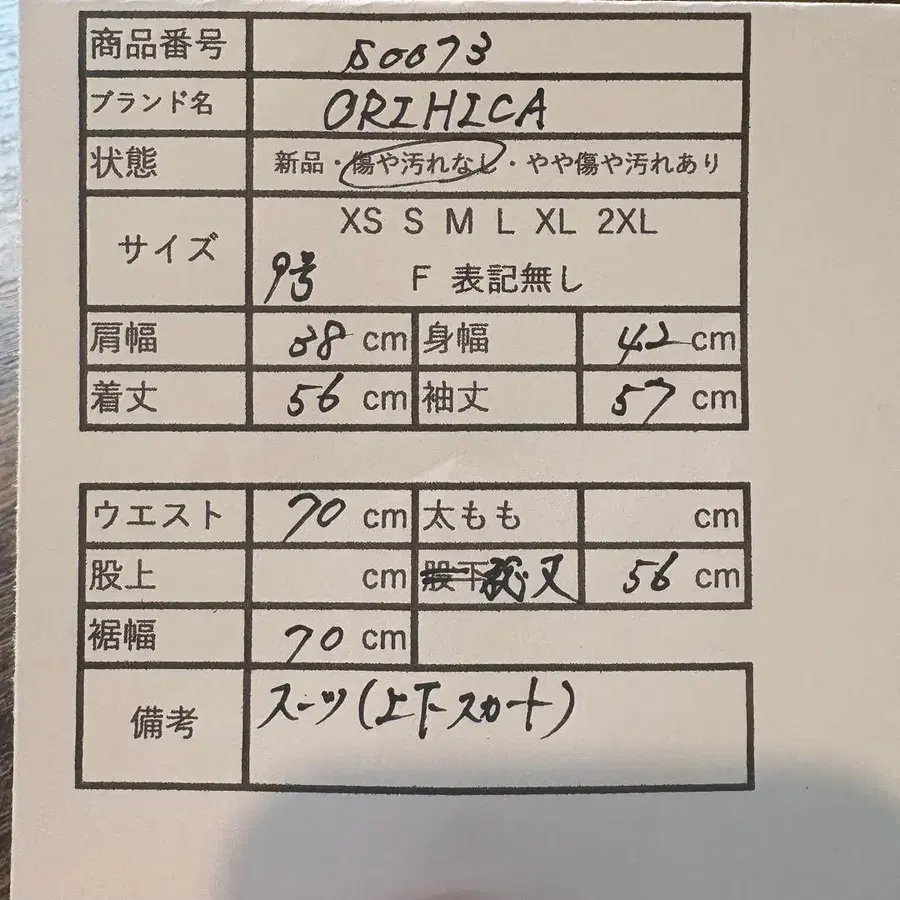 商品番号 S0073
ブランド名 ORIHICA
状態 新品・傷や汚れなし・やや傷や汚れあり
サイズ XS S M L XL 2XL
9号 F 表記無し
肩幅 38 cm 身幅 42 cm
着丈 56 cm 袖丈 57 cm
ウエスト 70 cm 太もも cm
股上 cm 股下 総丈 56 cm
裾幅 70 cm
備考 スーツ(上下スカート)